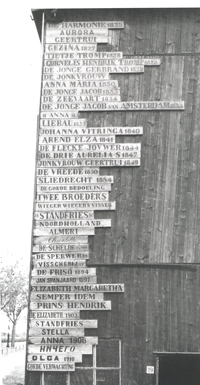 HARMONIE 1839
AURORA
GEERTRUI
GEZINA 1827
TJETJE TROMP 1828
CORNELIS HENDRIK TROMP 1828
DE JONGE GERBRAND 1832
DE JONKVROUW
ANNA MARIA 1836
DE JONGE JACOB 1837
DE ZEEVAART 1838
DE JONGE JACOB VAN AMSTERDAM
ANNA
LIEBAU
JOHANNA VITRINGA 1840
AREND ELZA 1841
DE FLECKE JOUWER 1844
DE DRIE AURELIA'S 1847
JONKVROUW GEERTRUI 1849
DE VREEDE
SLIEDRECHT
DE GOEDE BEDOELING
TWEE BROEDERS
STANDFRIES
NOORDHOLLAND
ALMERI
DE SCHELDE
DE SPERWER
VISSCHERIJ
DE FRISO 1894
JAN SPANJAARD 1897
ELIZABETH MARGARETHA
SEMPER IDEM
PRINS HENDRIK
ELIZABETH 1903
STANDFRIES
STELLA
ANNA 1906
OLGA
GOEDE VERWACHTING